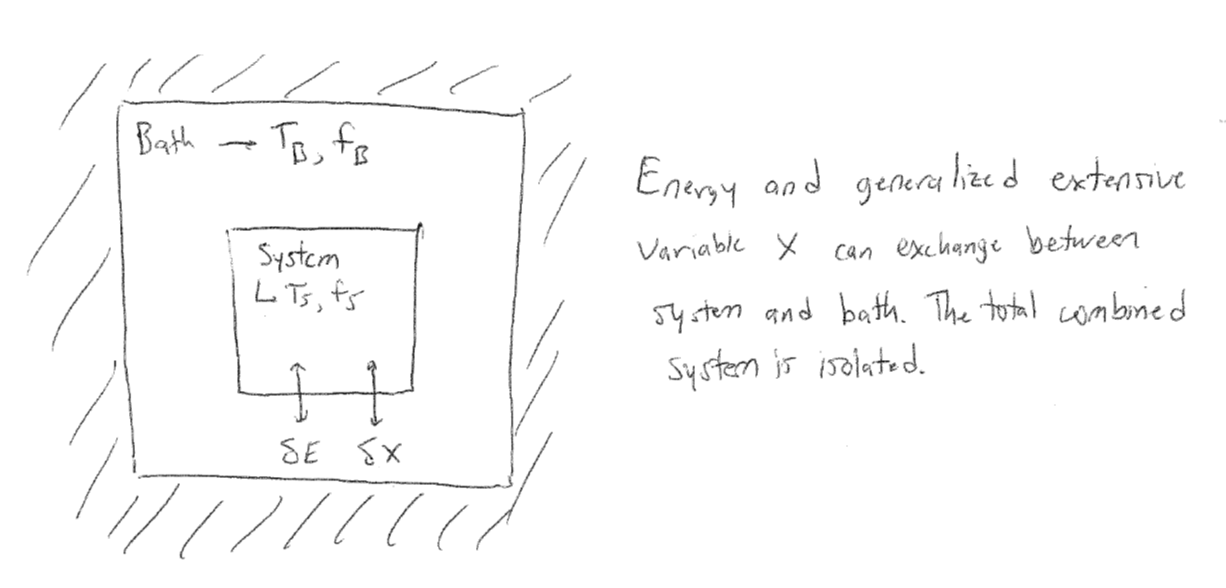 Bath → T_B, f_B
System
↳ T_S, f_S
δE δX
Energy and generalized extensive
variable X can exchange between
system and bath. The total combined
system is isolated.